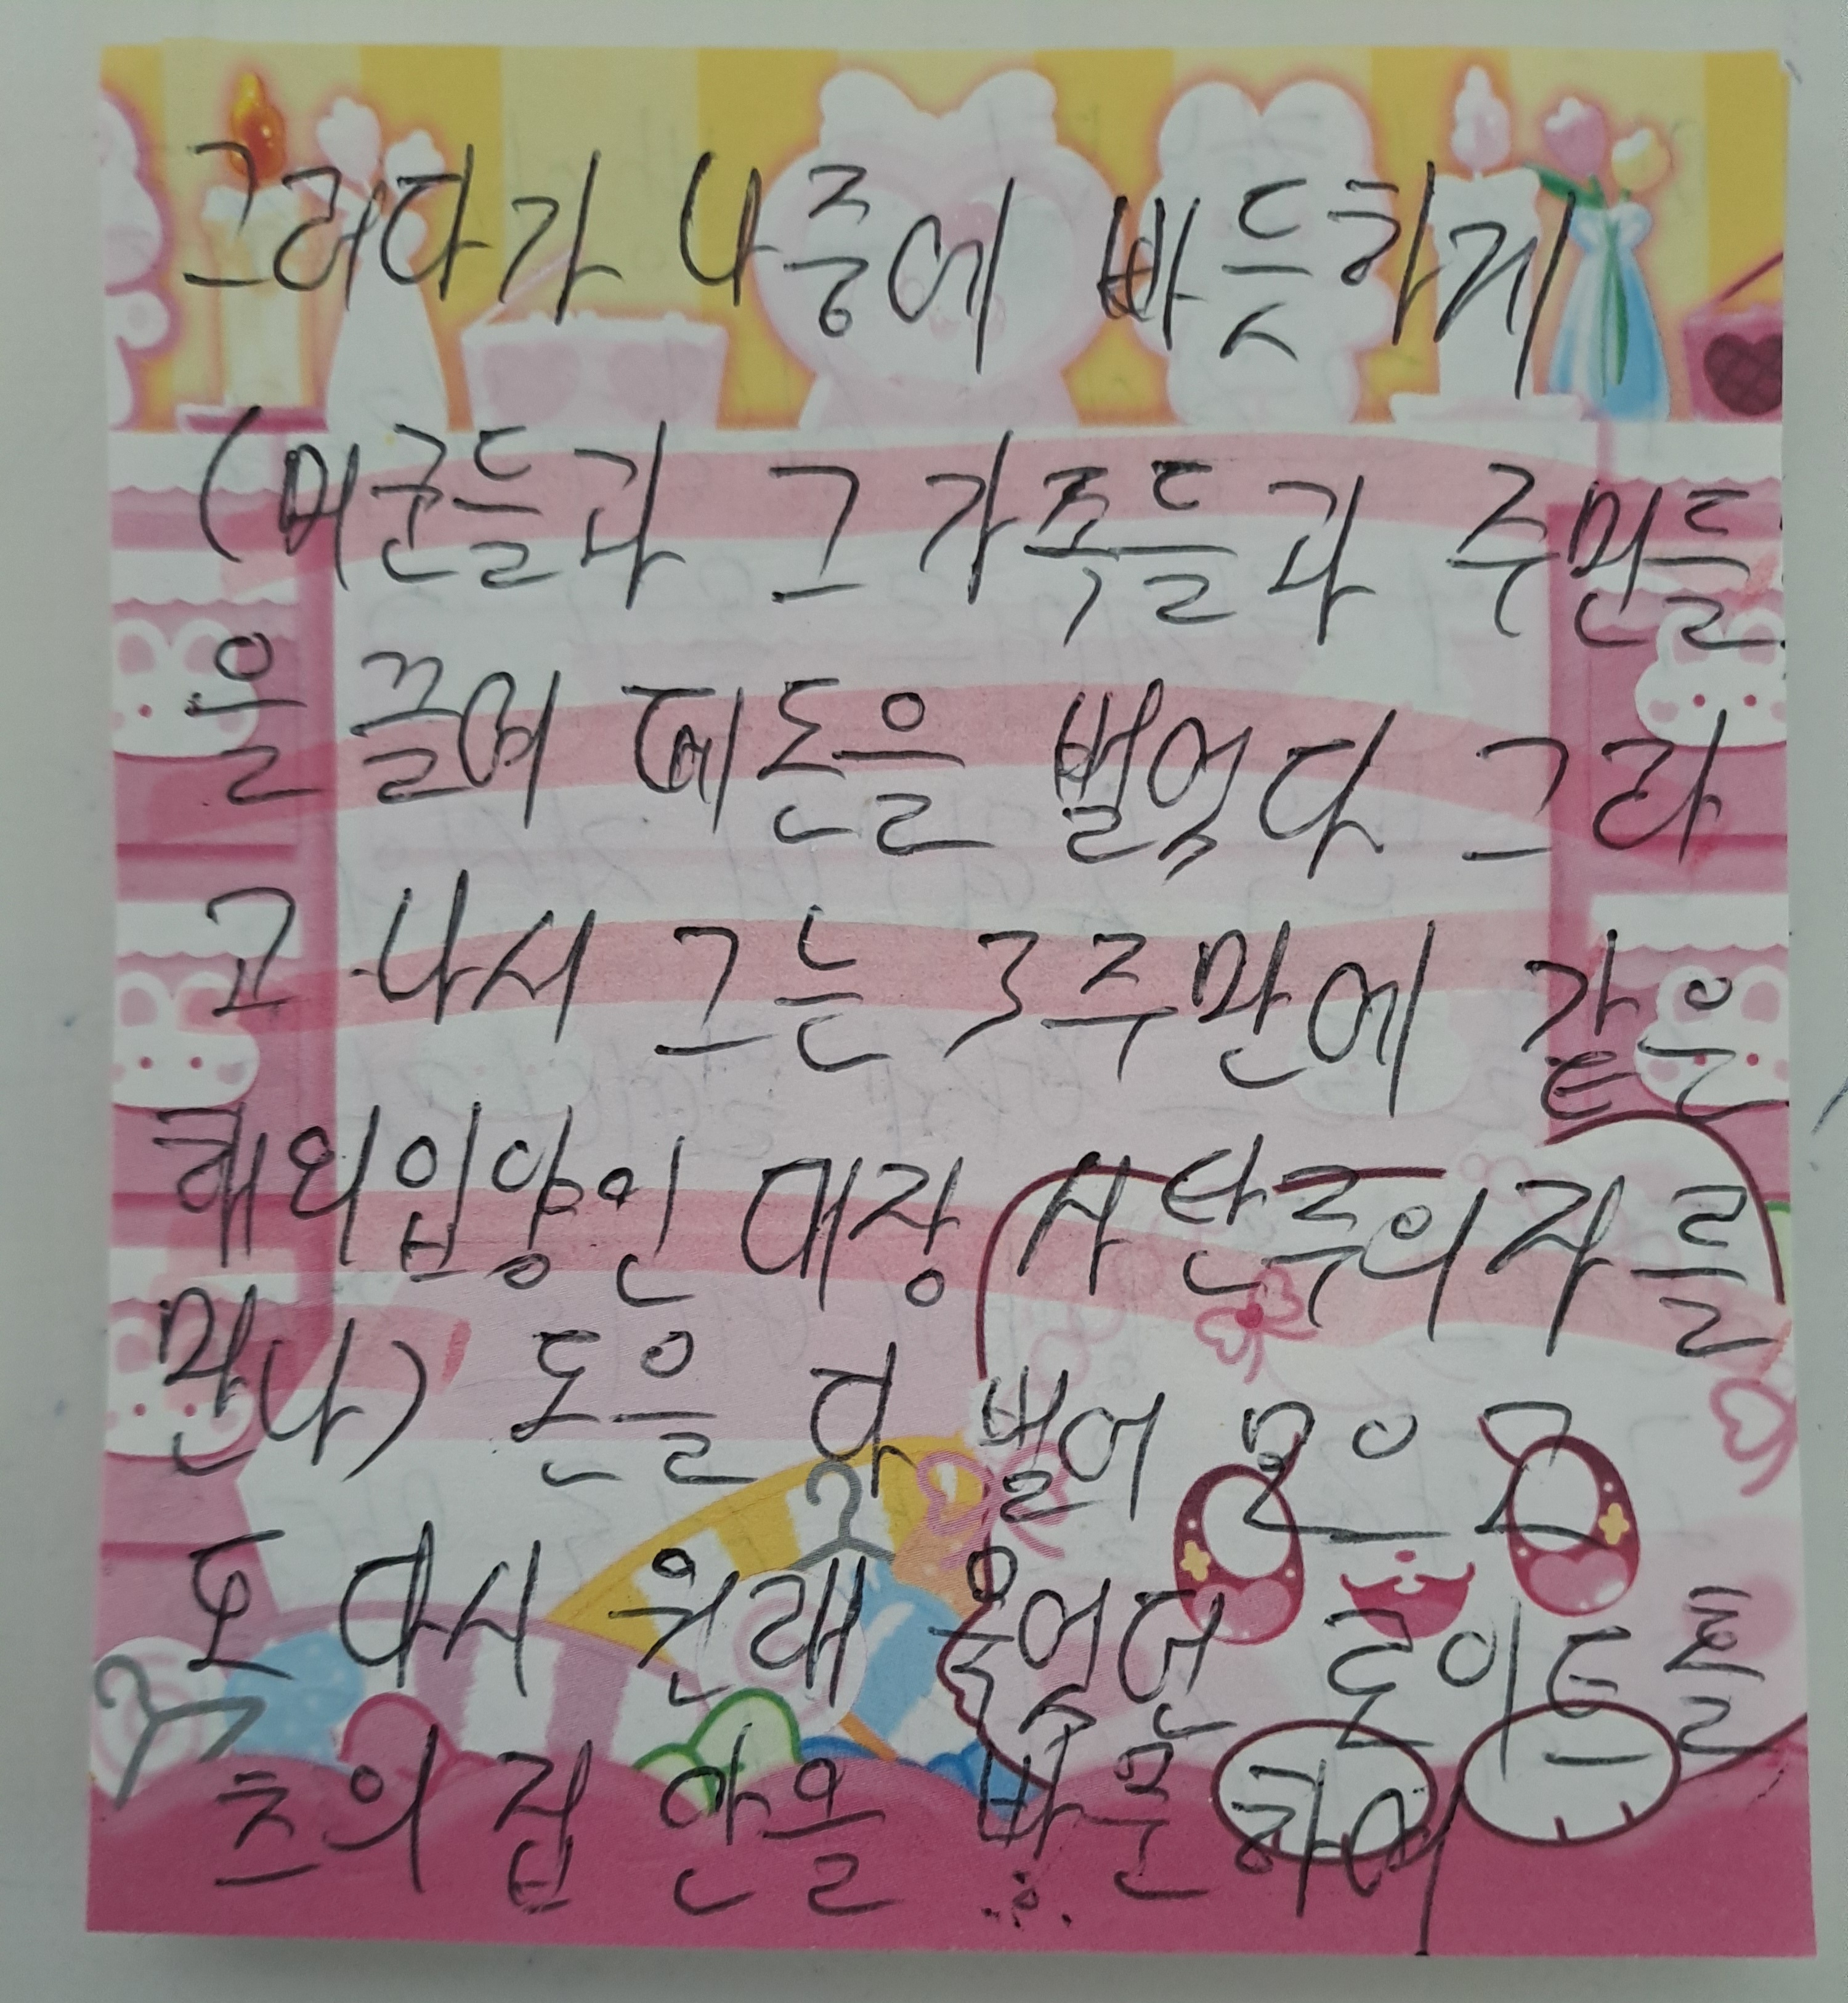 그러다가 나중에 빠듯하게
(미군들과 그 가족들과 주민들
을 끌며 떼돈을 벌었다 그라
고 나서 그는 3주만에 같은
해외입양인 대장 사탄주의자를
만나) 돈을 다 벌어 모으고
또 다시 원래 묵었던 로이드
초의 집 안을 방문하여